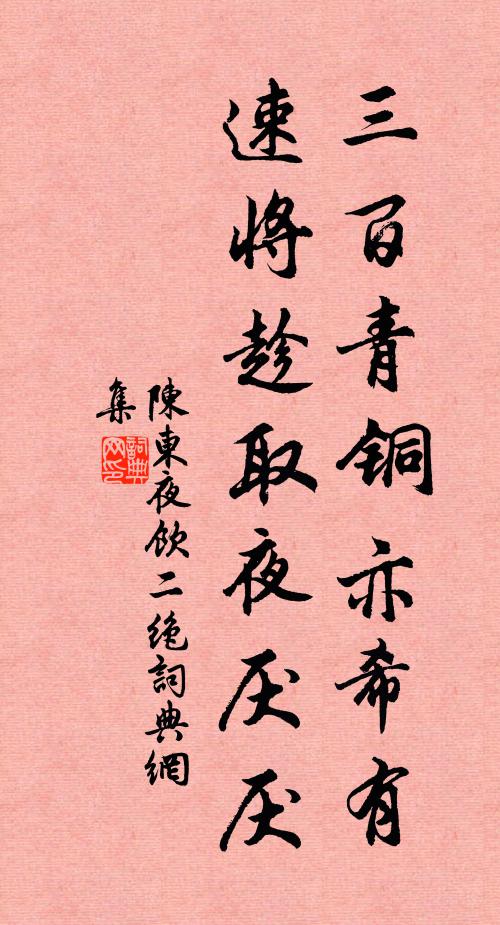 三百青铜亦希有
速将趁取夜厌厌
陳東夜飲二绝詞典網
集
詞典網印